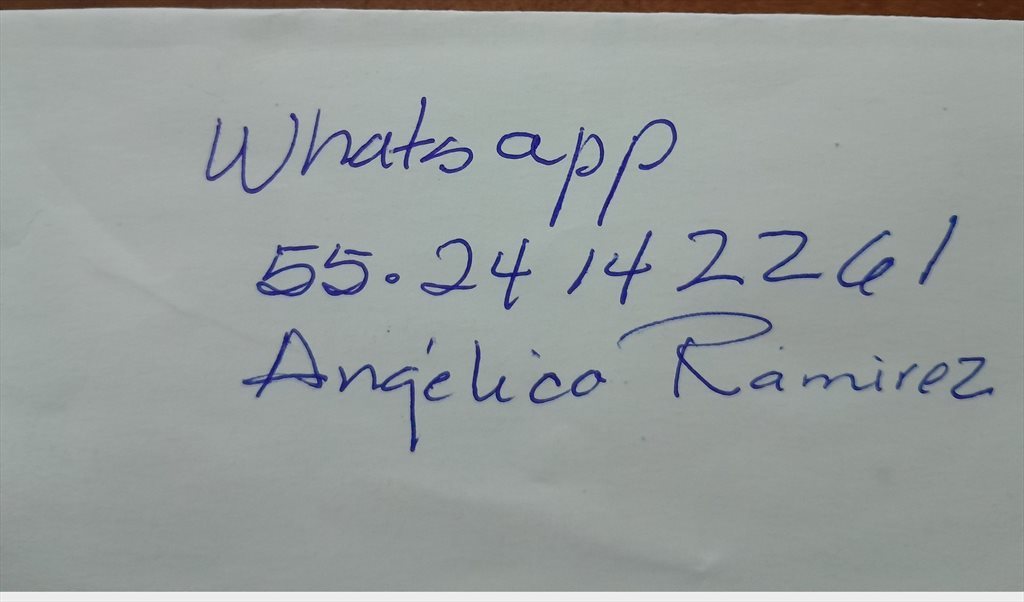 Whatsapp
55.24 14 22 61
Angélica Ramirez